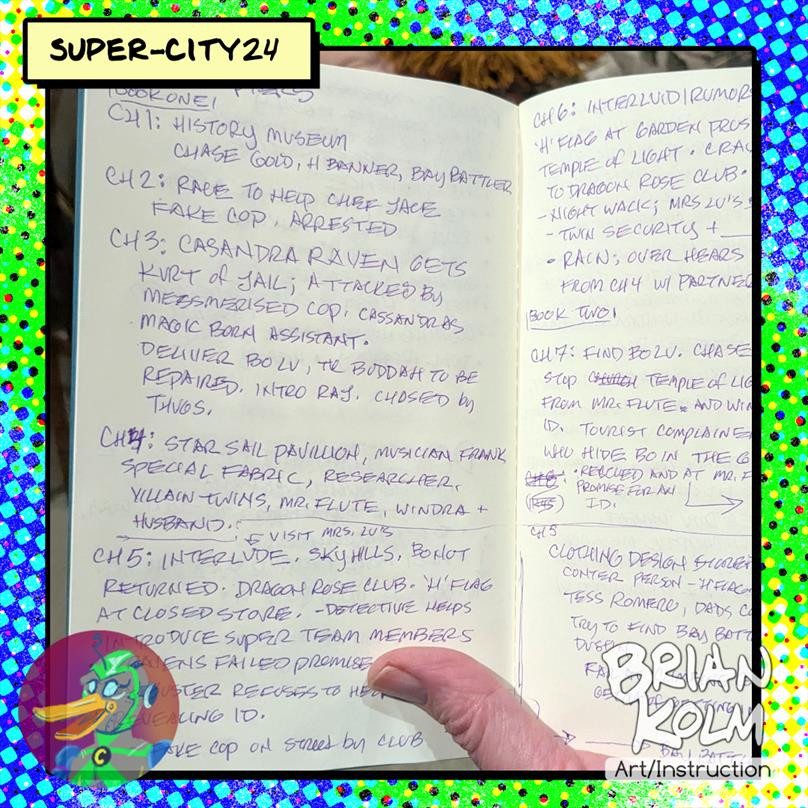 SUPER-CITY24
BOOK ONE
CH 1: HISTORY MUSEUM
CHASE GOLD, H BANNER, BAY BATTLER
CH 2: RACE TO HELP CHEF JACE
FAKE COP, ARRESTED
CH 3: CASANDRA RAVEN GETS
KURT of JAIL; ATTACKED BY
MEZSMERISED COP. CASSANDRAS
MAGIC BORN ASSISTANT.
DELIVER BO LU, TR BUDDAH TO BE
REPAIRED. INTRO RAY. CHASED by
THUGS.
CH 4: STAR SAIL PAVILLION, MUSICIAN FRANK
SPECIAL FABRIC, RESEARCHER,
VILLAIN TWINS, MR. FLUTE, WINDRA +
HUSBAND.
VISIT MRS. LU'S
CH 5: INTERLUDE. SKY HILLS, BO NOT
RETURNED. DRAGON ROSE CLUB. 'H' FLAG
AT CLOSED STORE. - DETECTIVE HELPS
INTRODUCE SUPER TEAM MEMBERS
FAILED PROMISE
REFUSES TO
REVEALING ID.
COP ON STREET by CLUB
CH 6: INTERLUID / RUMORS
'H' FLAG AT GARDEN
TEMPLE of LIGHT.
TO DRAGON ROSE CLUB.
- NIGHT WALK; MRS LU'S
- TWIN SECURITY +
• RAIN; OVER HEARS
FROM CH 4 W/ PARTNER
BOOK TWO
CH 7: FIND BO LU. CHASE
STOP TEMPLE of LIG
FROM MR. FLUTE AND WIN
ID. TOURIST COMPLAINE
WHO HIDE BO IN THE G
• REACHED AND AT MR. F
PROMISE FOR AN
ID.
CLOTHING DESIGN STORE
CONTER PERSON - 'H' FLAG
TESS ROMERO, DADS C
TRY TO FIND BAY BATT
BRIAN
KOLM
Art/Instruction